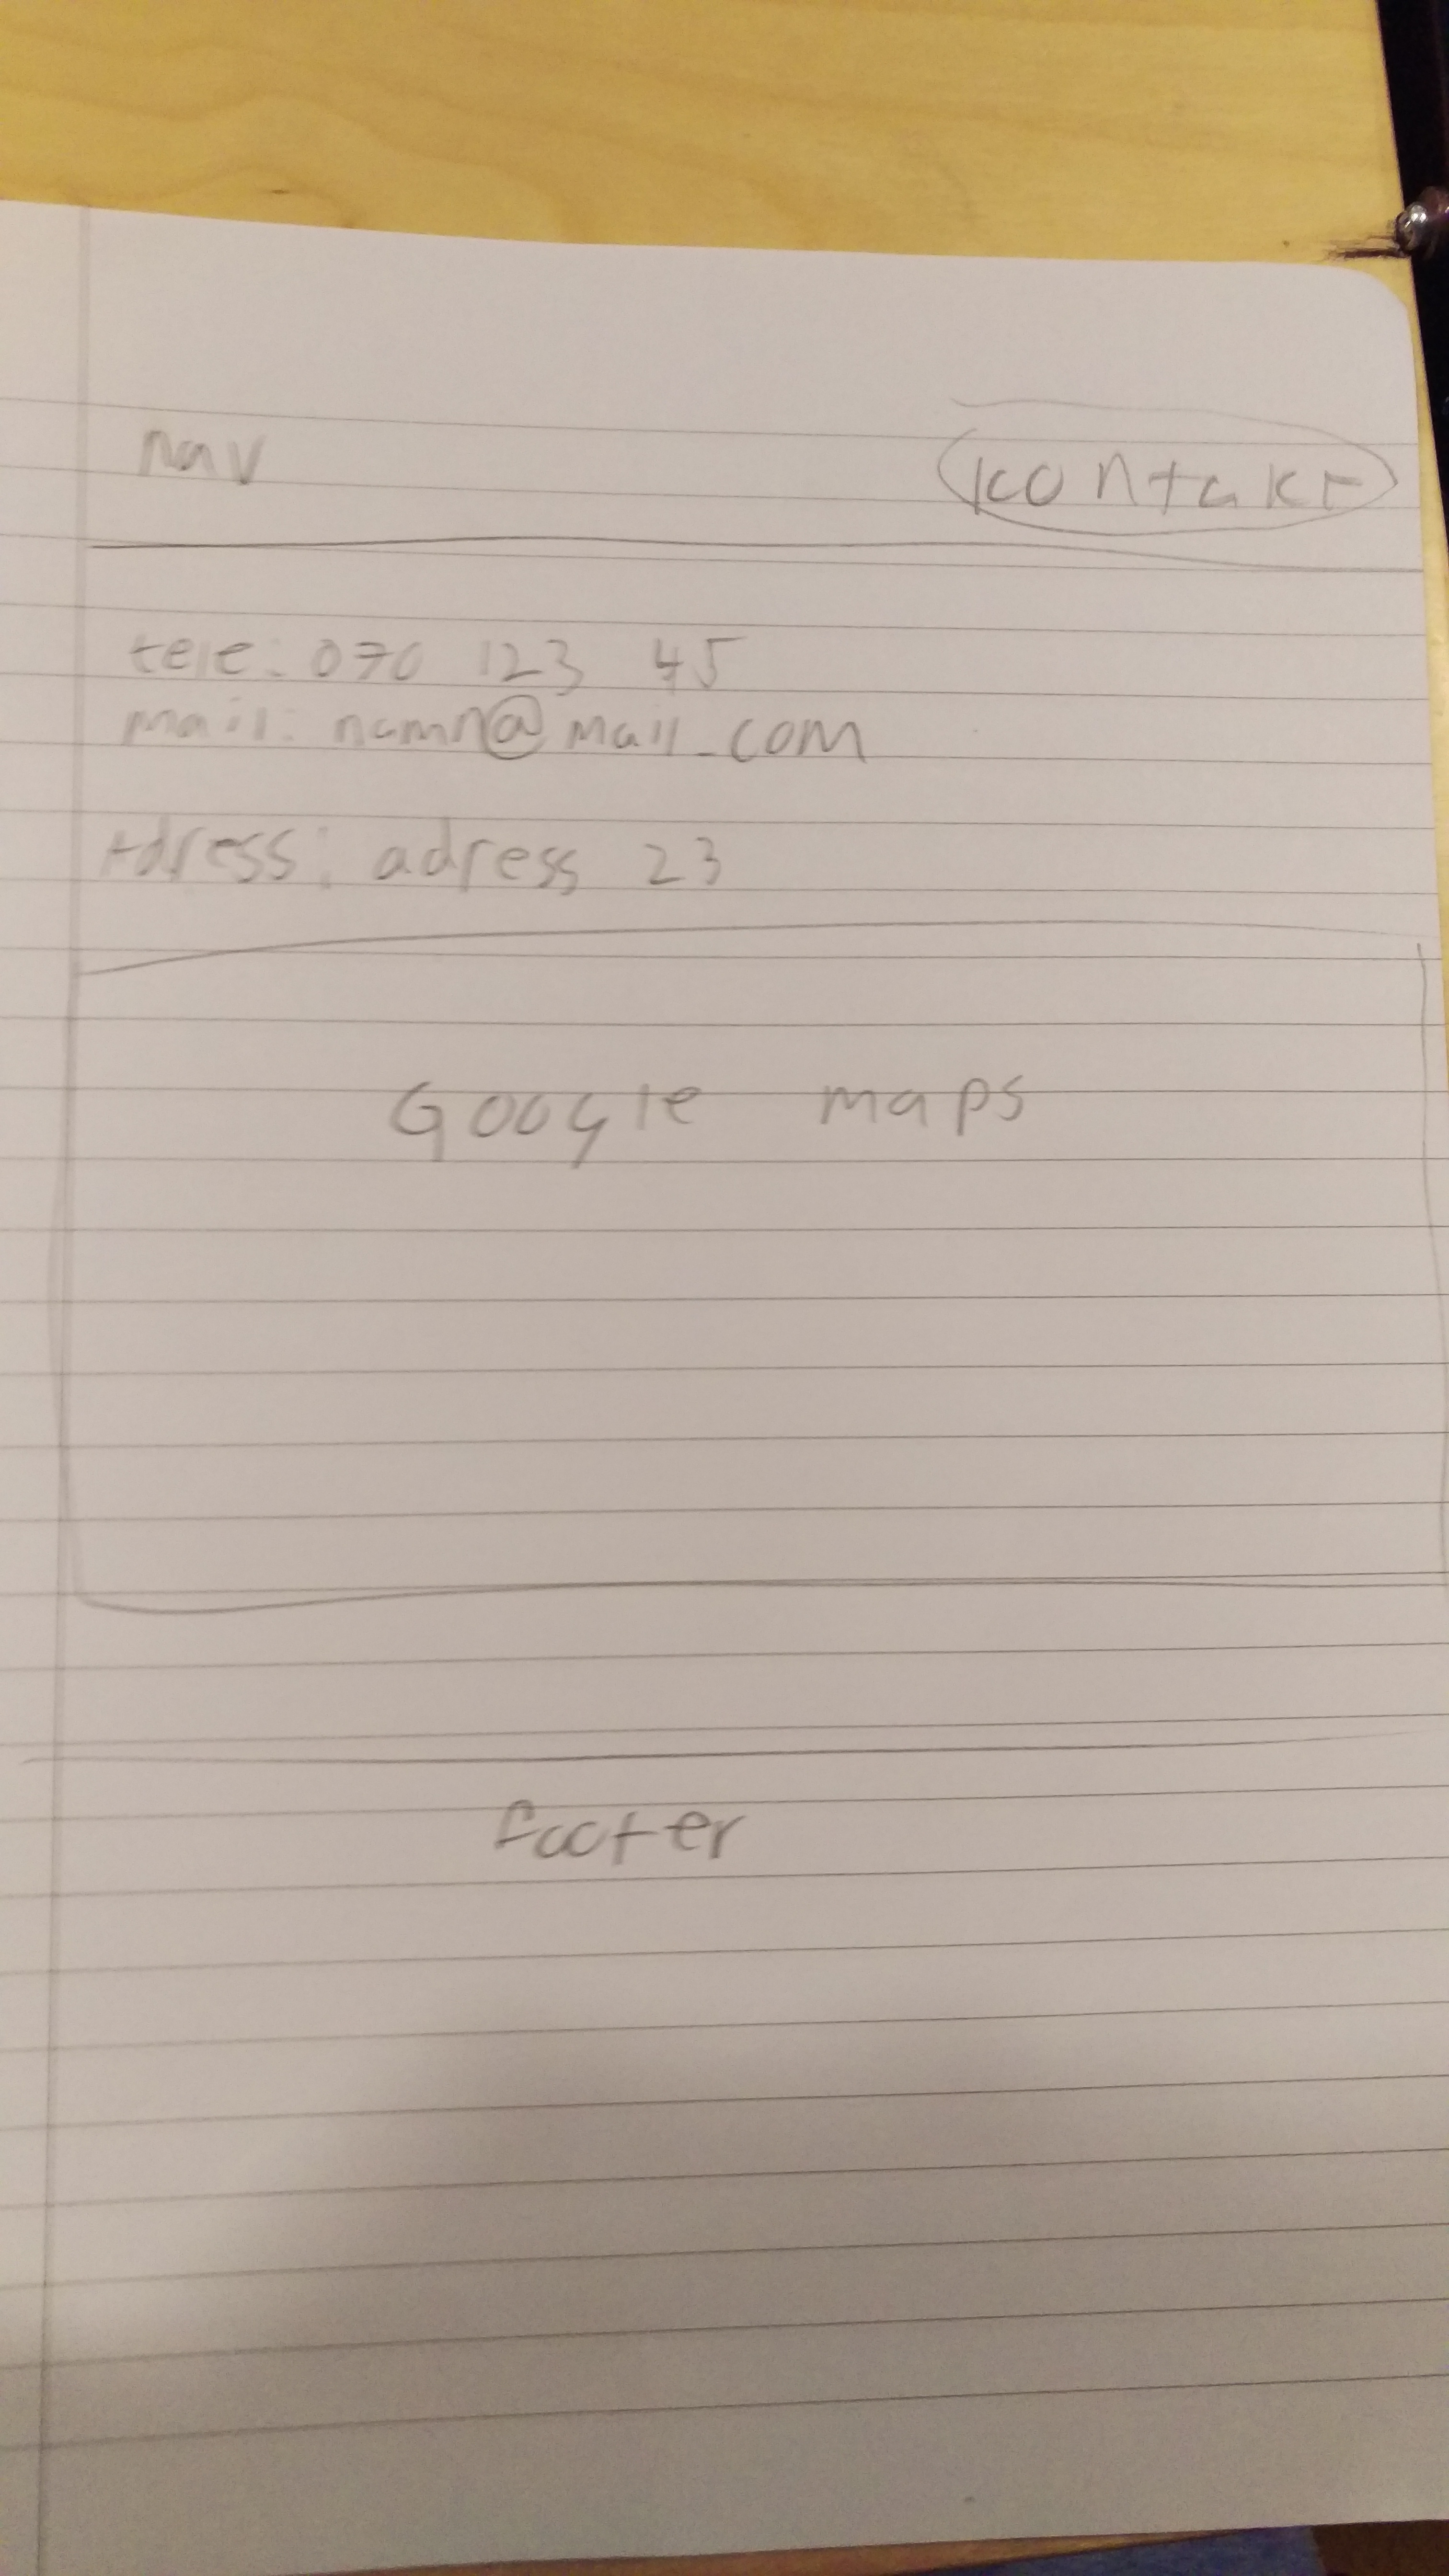 nav kontakt
tele: 070 123 45
mail: namn@mail.com
Adress: adress 23
Google maps
footer